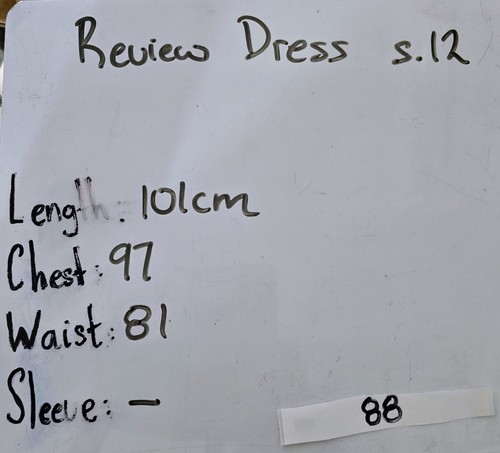 Review Dress s.12
Length: 101cm
Chest: 97
Waist: 81
Sleeve: -
88